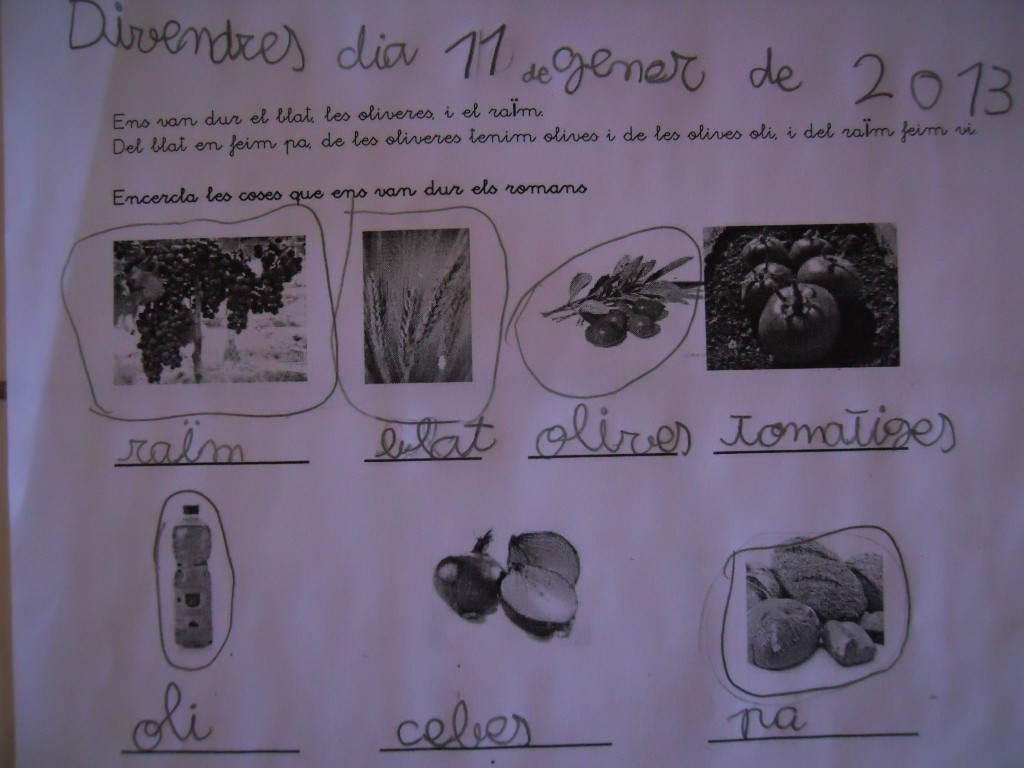 Divendres dia 11 de gener de 2013
Ens van dur el blat, les oliveres, i el raïm.
Del blat en feim pa, de les oliveres tenim olives i de les olives oli, i del raïm feim vi.
Encercla les coses que ens van dur els romans
raïm blat olives Tomatiges
oli cebes pa